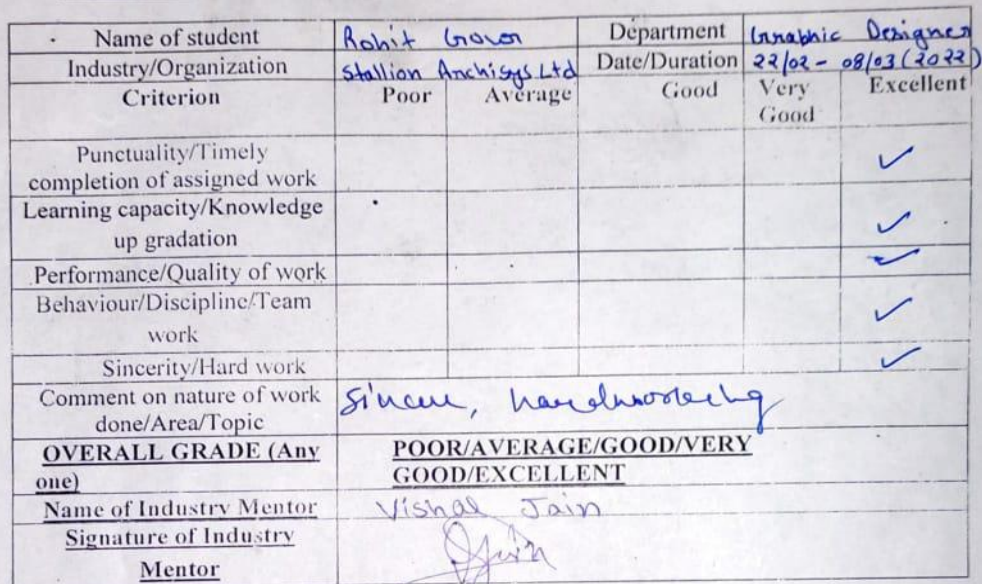 Name of student Rohit Department Graphic Designer
Industry/Organization Stallion Archisys Ltd Date/Duration 22/02 - 08/03 (2022)
Criterion Poor Average Good Very Excellent
Good
Punctuality/Timely ✓
completion of assigned work
Learning capacity/Knowledge
up gradation ✓
Performance/Quality of work ✓
Behaviour/Discipline/Team ✓
work
Sincerity/Hard work ✓
Comment on nature of work Sincere, hardworking
done/Area/Topic
OVERALL GRADE (Any POOR/AVERAGE/GOOD/VERY
one) GOOD/EXCELLENT
Name of Industry Mentor Vishal Jain
Signature of Industry
Mentor